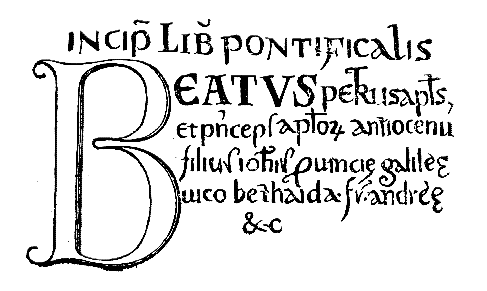 INCIP̄ LIB̄ PONTIFICALIS
BEATVS petrus apłs,
et princeps aptoꝝ antiocenu
filius iohis ꝓuincię galileę
uico bethaida. fr̄. andreę
&c